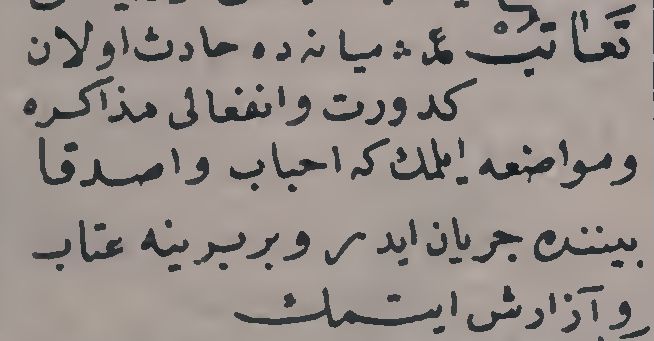 تَعَاتُبْ ع ث میانه ده حادث اولان
كدورت وانفعالی مذاكره
ومواضعه ایلمك كه احباب واصدقا
بیننده جریان ایدر وبربرینه عتاب
وآزارش ایتمك